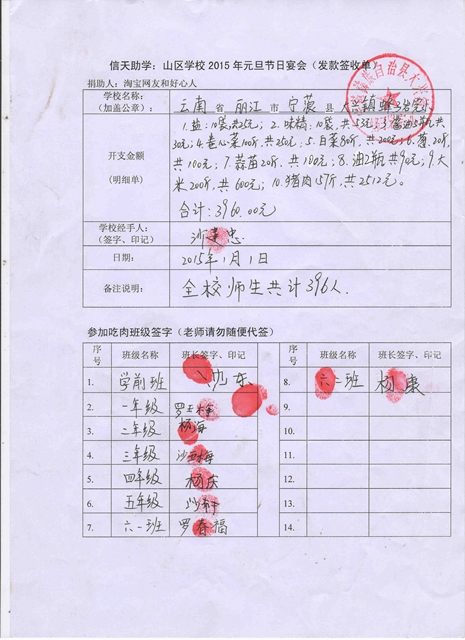 信天助学：山区学校 2015 年元旦节日宴会（发款签收单）
捐助人：淘宝网友和好心人
学校名称：
（加盖公章）：
云南 省 丽江 市 宁蒗 县 大兴镇
开支金额
（明细单）
1.盐:10袋,共25元; 2.味精:10袋,共53元;3.酱油5瓶,共
30元;4.卷心菜100斤,共250元;5.白菜80斤,共200元;6.葱20斤
共100元;7.蒜苗20斤,共100元;8.油2瓶共90元;9.大
米200斤,共600元;10.猪肉157斤,共2512元。
合计:3960.00元
学校经手人：
（签字、印记）
沙建忠
日期：
2015年1月1日
备注说明：
全校师生共计396人.
参加吃肉班级签字（老师请勿随便代签）
序号 班级名称 班长签字、印记 序号 班级名称 班长签字、印记
1. 学前班
8. 六二班 杨康
2. 一年级 罗玉梅
9.
3. 二年级 杨海
10.
4. 三年级
11.
5. 四年级 杨庆
12.
6. 五年级
13.
7. 六一班 罗春福
14.